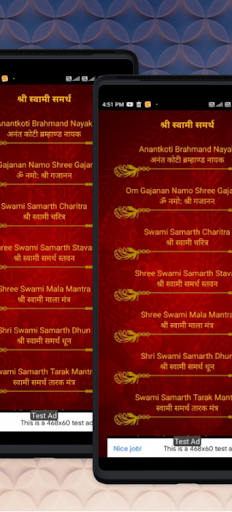 श्री स्वामी समर्थ
Anantkoti Brahmand Nayak
अनंत कोटी ब्रम्हाण्ड नायक
Gajanan Namo Shree Gajan
ॐ नमो: श्री गजानन
Swami Samarth Charitra
श्री स्वामी चरित्र
Shree Swami Samarth Stavan
श्री स्वामी समर्थ स्तवन
Shree Swami Mala Mantra
श्री स्वामी माला मंत्र
Shri Swami Samarth Dhun
श्री स्वामी समर्थ धून
Swami Samarth Tarak Mantra
स्वामी समर्थ तारक मंत्र
Test Ad
This is a 468x60 test ad
4:51 PM
श्री स्वामी समर्थ
Anantkoti Brahmand Nayak
अनंत कोटी ब्रम्हाण्ड नायक
Om Gajanan Namo Shree Gajan
ॐ नमो: श्री गजानन
Swami Samarth Charitra
श्री स्वामी चरित्र
Shree Swami Samarth Stavan
श्री स्वामी समर्थ स्तवन
Shree Swami Mala Mantra
श्री स्वामी माला मंत्र
Shri Swami Samarth Dhun
श्री स्वामी समर्थ धून
Swami Samarth Tarak Mantra
स्वामी समर्थ तारक मंत्र
Test Ad
Nice job!
This is a 468x60 test